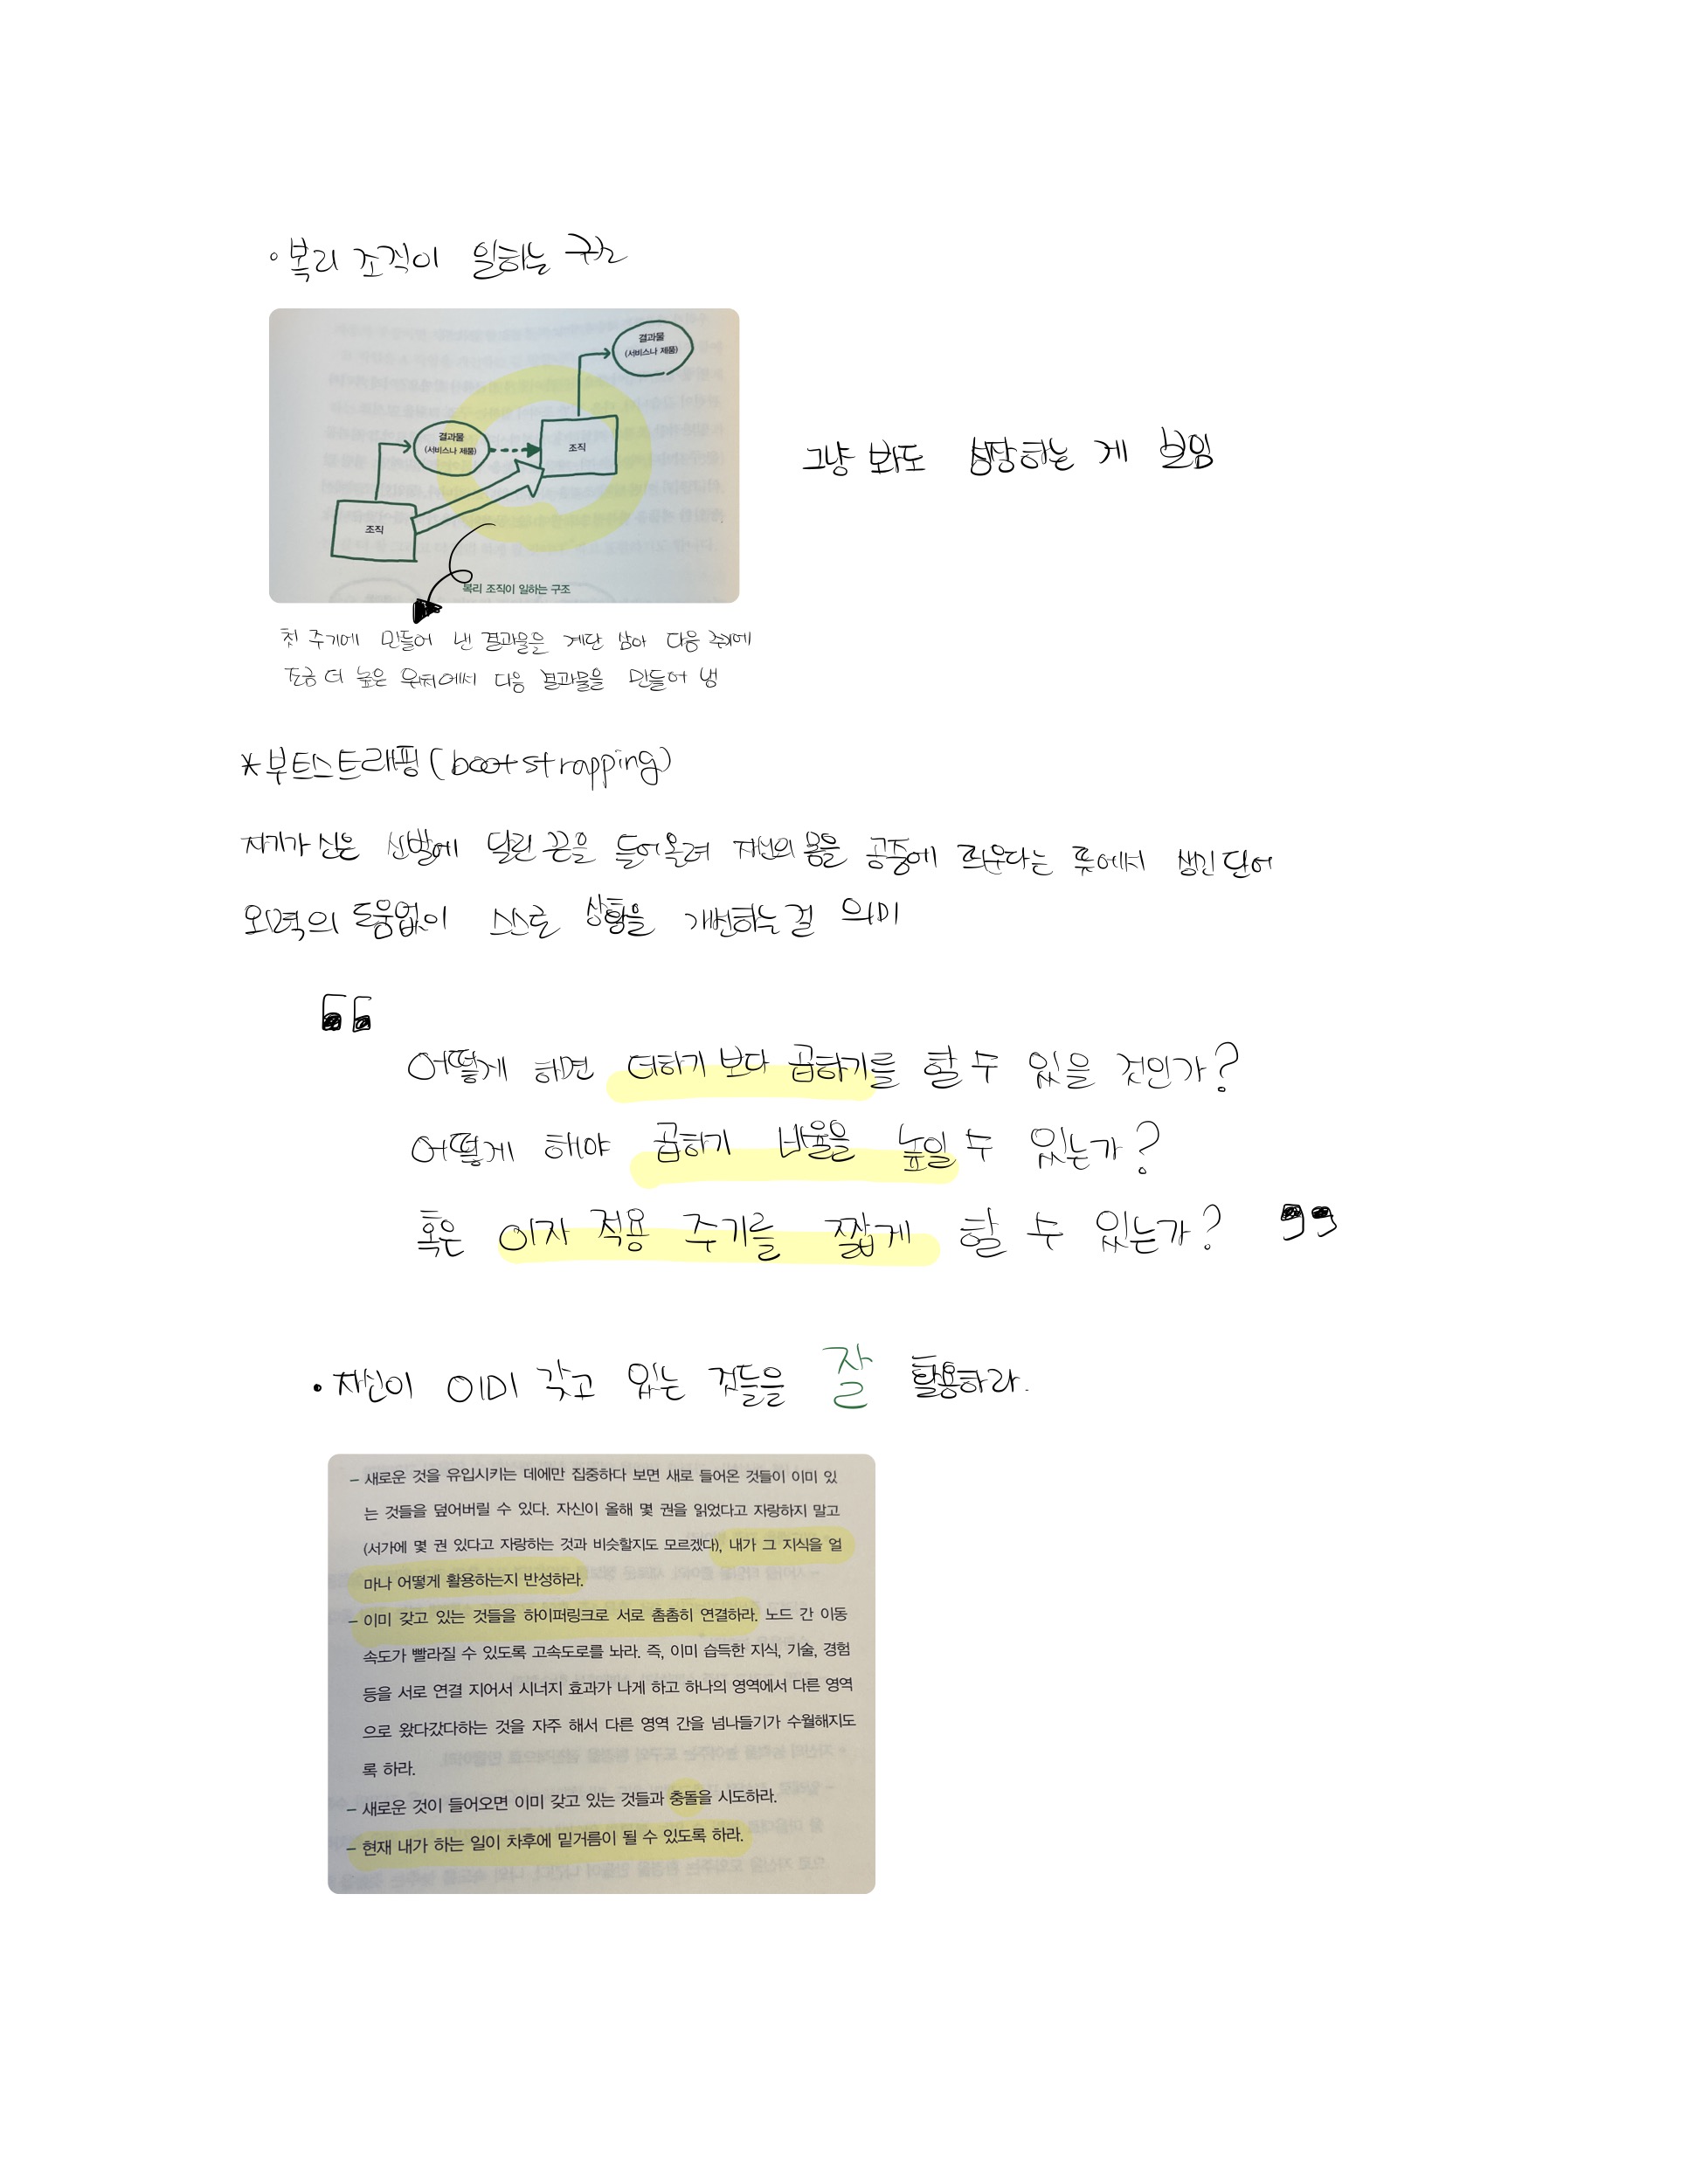 • 복리 조직이 일하는 구조
결과물
(서비스나 제품)
결과물
(서비스나 제품)
조직
조직
복리 조직이 일하는 구조
그냥 봐도 성장하는 게 보임
첫 주기에 만들어 낸 결과물을 계단 삼아 다음 주기에
조금 더 높은 위치에서 다음 결과물을 만들어 냄
* 부트스트래핑 (bootstrapping)
자기가 신은 신발에 달린 끈을 들어올려 자신의 몸을 공중에 띄운다는 것에서 생긴 단어
외력의 도움없이 스스로 상황을 개변하는걸 의미
“
어떻게 하면 더하기 보다 곱하기를 할 수 있을 것인가?
어떻게 해야 곱하기 비율을 높일 수 있는가?
혹은 이자 적용 주기를 짧게 할 수 있는가? ”
• 자신이 이미 갖고 있는 것들을 잘 활용하라.
– 새로운 것을 유입시키는 데에만 집중하다 보면 새로 들어온 것들이 이미 있
는 것들을 덮어버릴 수 있다. 자신이 올해 몇 권을 읽었다고 자랑하지 말고
(서가에 몇 권 있다고 자랑하는 것과 비슷할지도 모르겠다), 내가 그 지식을 얼
마나 어떻게 활용하는지 반성하라.
– 이미 갖고 있는 것들을 하이퍼링크로 서로 촘촘히 연결하라. 노드 간 이동
속도가 빨라질 수 있도록 고속도로를 놔라. 즉, 이미 습득한 지식, 기술, 경험
등을 서로 연결 지어서 시너지 효과가 나게 하고 하나의 영역에서 다른 영역
으로 왔다갔다하는 것을 자주 해서 다른 영역 간을 넘나들기가 수월해지도
록 하라.
– 새로운 것이 들어오면 이미 갖고 있는 것들과 충돌을 시도하라.
– 현재 내가 하는 일이 차후에 밑거름이 될 수 있도록 하라.